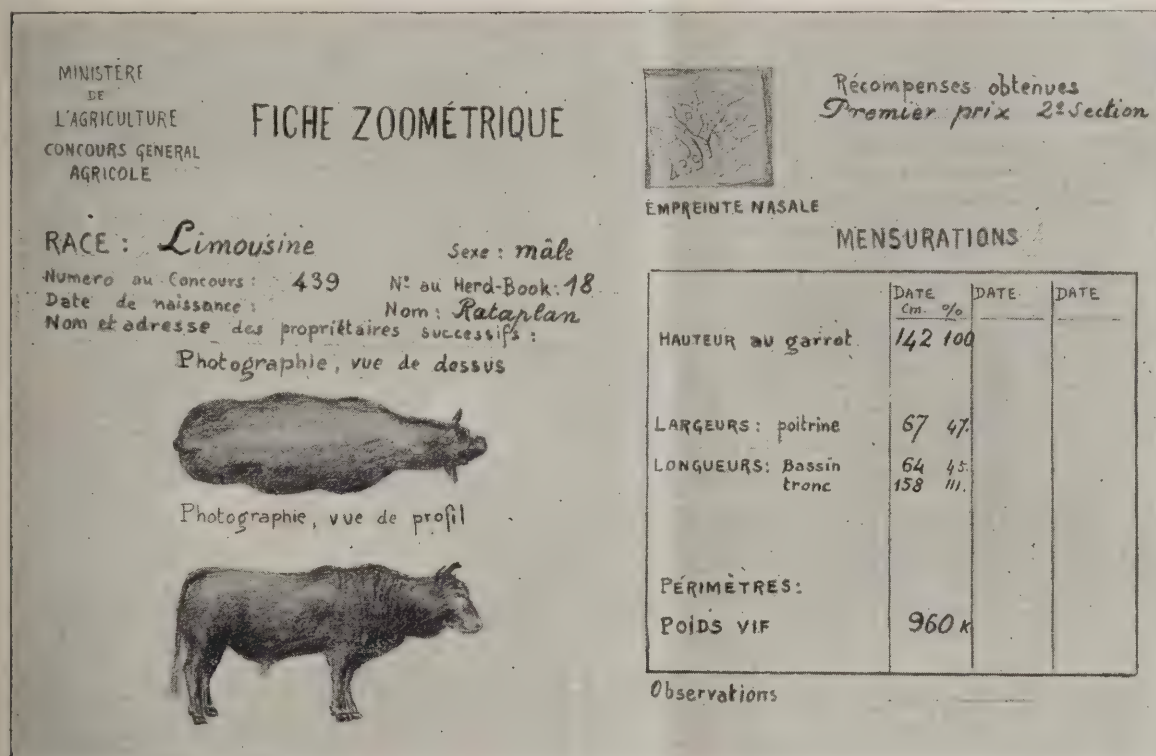 MINISTÈRE
DE
L'AGRICULTURE
CONCOURS GENERAL
AGRICOLE
FICHE ZOOMÉTRIQUE
RACE : Limousine
Sexe : mâle
Numero au Concours : 439
N° au Herd-Book : 18
Date de naissance :
Nom : Rataplan
Nom et adresse des propriétaires successifs :
Photographie, vue de dessus
Photographie, vue de profil
439
EMPREINTE NASALE
Récompenses obtenues
Premier prix 2e Section
MENSURATIONS
DATE DATE DATE
Cm. %
HAUTEUR au garrot 142 100
LARGEURS : poitrine 67 47.
LONGUEURS : Bassin 64 45.
tronc 158 111.
PÉRIMÈTRES :
POIDS VIF 960 K
Observations